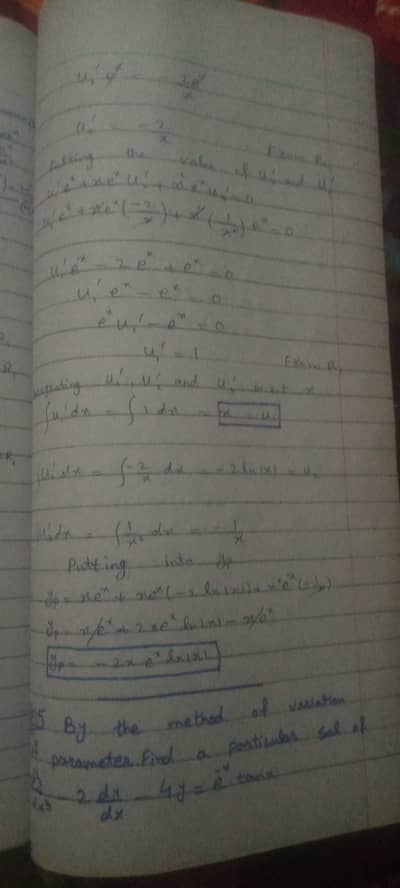 u₂' eˣ = -2eˣ/x
u₂' = -2/x
Putting the value of u₂' and u₃' From R₁
u₁'eˣ + xeˣu₂' + x²eˣu₃' = 0
u₁'eˣ + xeˣ(-2/x) + x²(1/x²)eˣ = 0
u₁'eˣ - 2eˣ + eˣ = 0
u₁'eˣ - eˣ = 0
eˣu₁' - eˣ = 0
u₁' = 1 From R₁
u₁', u₂' and u₃' w.r.t x
∫u₁'dx = ∫1 dx = x = u₁
∫u₂'dx = ∫-2/x dx = -2ln|x| = u₂
u₃'dx = ∫1/x² dx = -1/x
Putting into yp
yp = xeˣ + xeˣ(-2 ln|x|) + x²eˣ(-1/x)
yp = xeˣ - 2xeˣ ln|x| - xeˣ
yp = -2x eˣ ln|x|
By the method of variation
parameter Find a particular sol of
- 2 dy/dx - 4y = eˣ tanx